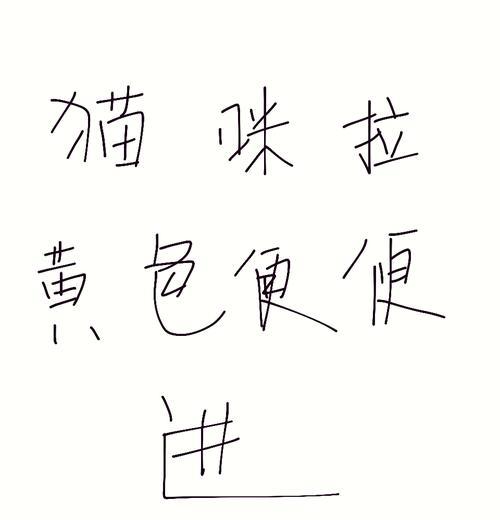 猫咪拉
黄色便便
进